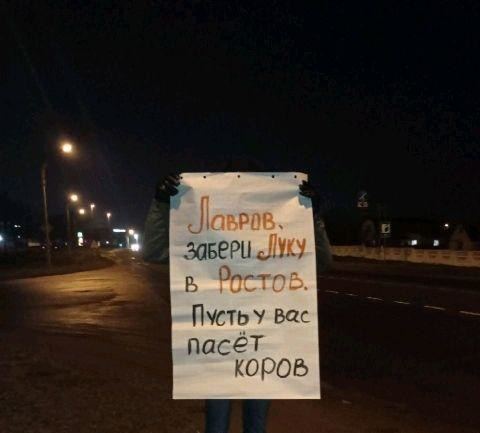 Лавров,
забери Луку
в Ростов.
Пусть у вас
пасёт
коров